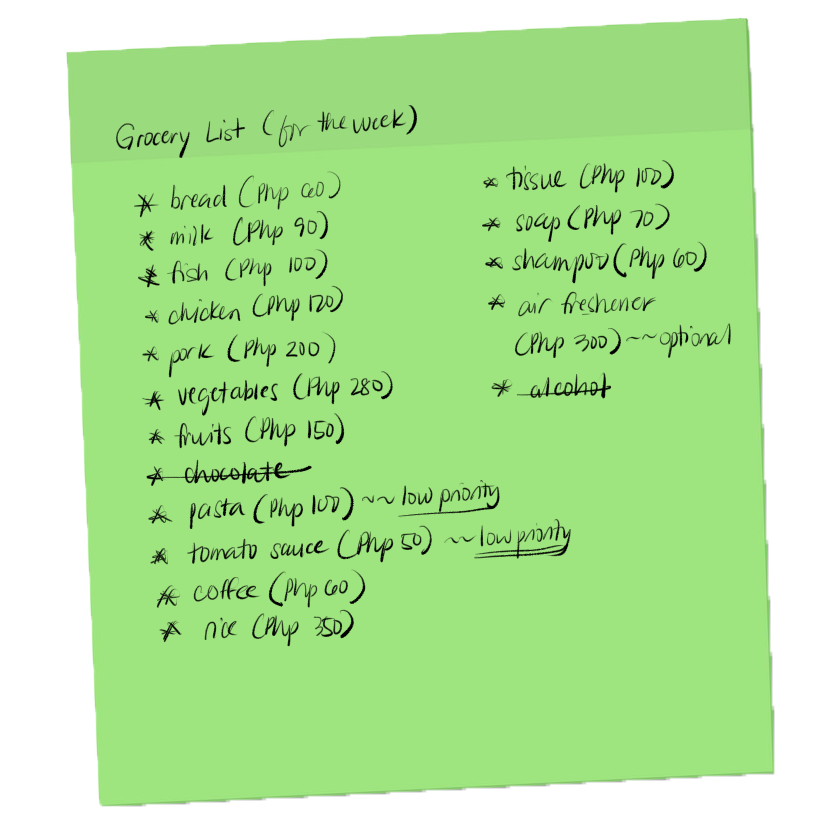 Grocery List (for the week)
* bread (Php 60)
* milk (Php 90)
* fish (Php 100)
* chicken (Php 120)
* pork (Php 200)
* vegetables (Php 280)
* fruits (Php 150)
* chocolate
* pasta (Php 100) ~~ low priority
* tomato sauce (Php 50) ~~ low priority
* coffee (Php 60)
* rice (Php 350)
* tissue (Php 100)
* soap (Php 70)
* shampoo (Php 60)
* air freshener
(Php 300) ~~ optional
* alcohol